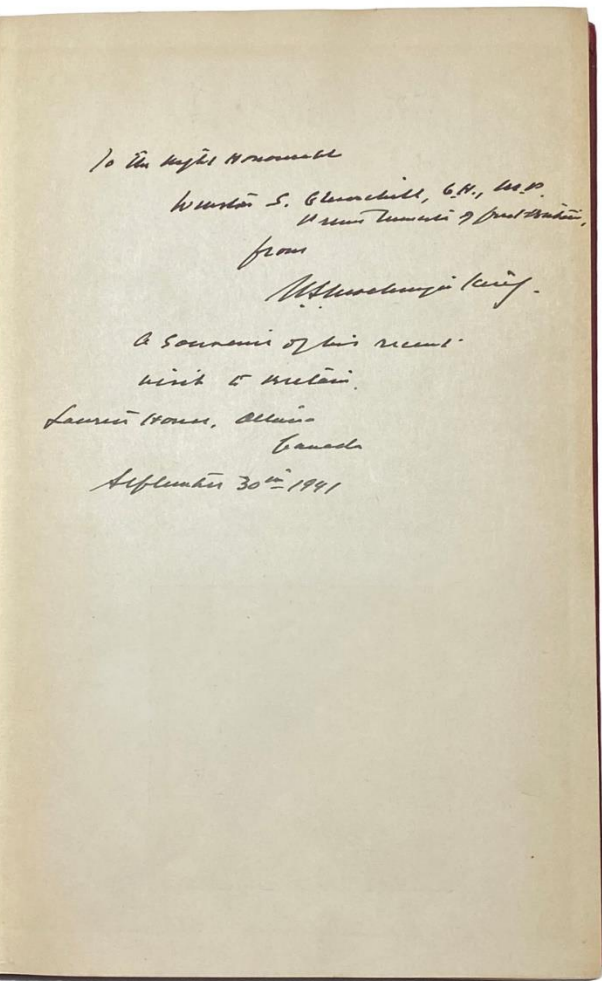 To the Right Honourable
Winston S. Churchill, C.H., M.P.
Prime Minister of Great Britain,
from
W.L. Mackenzie King.
A souvenir of his recent
visit to Britain.
Laurier House, Ottawa
Canada
September 30th 1941